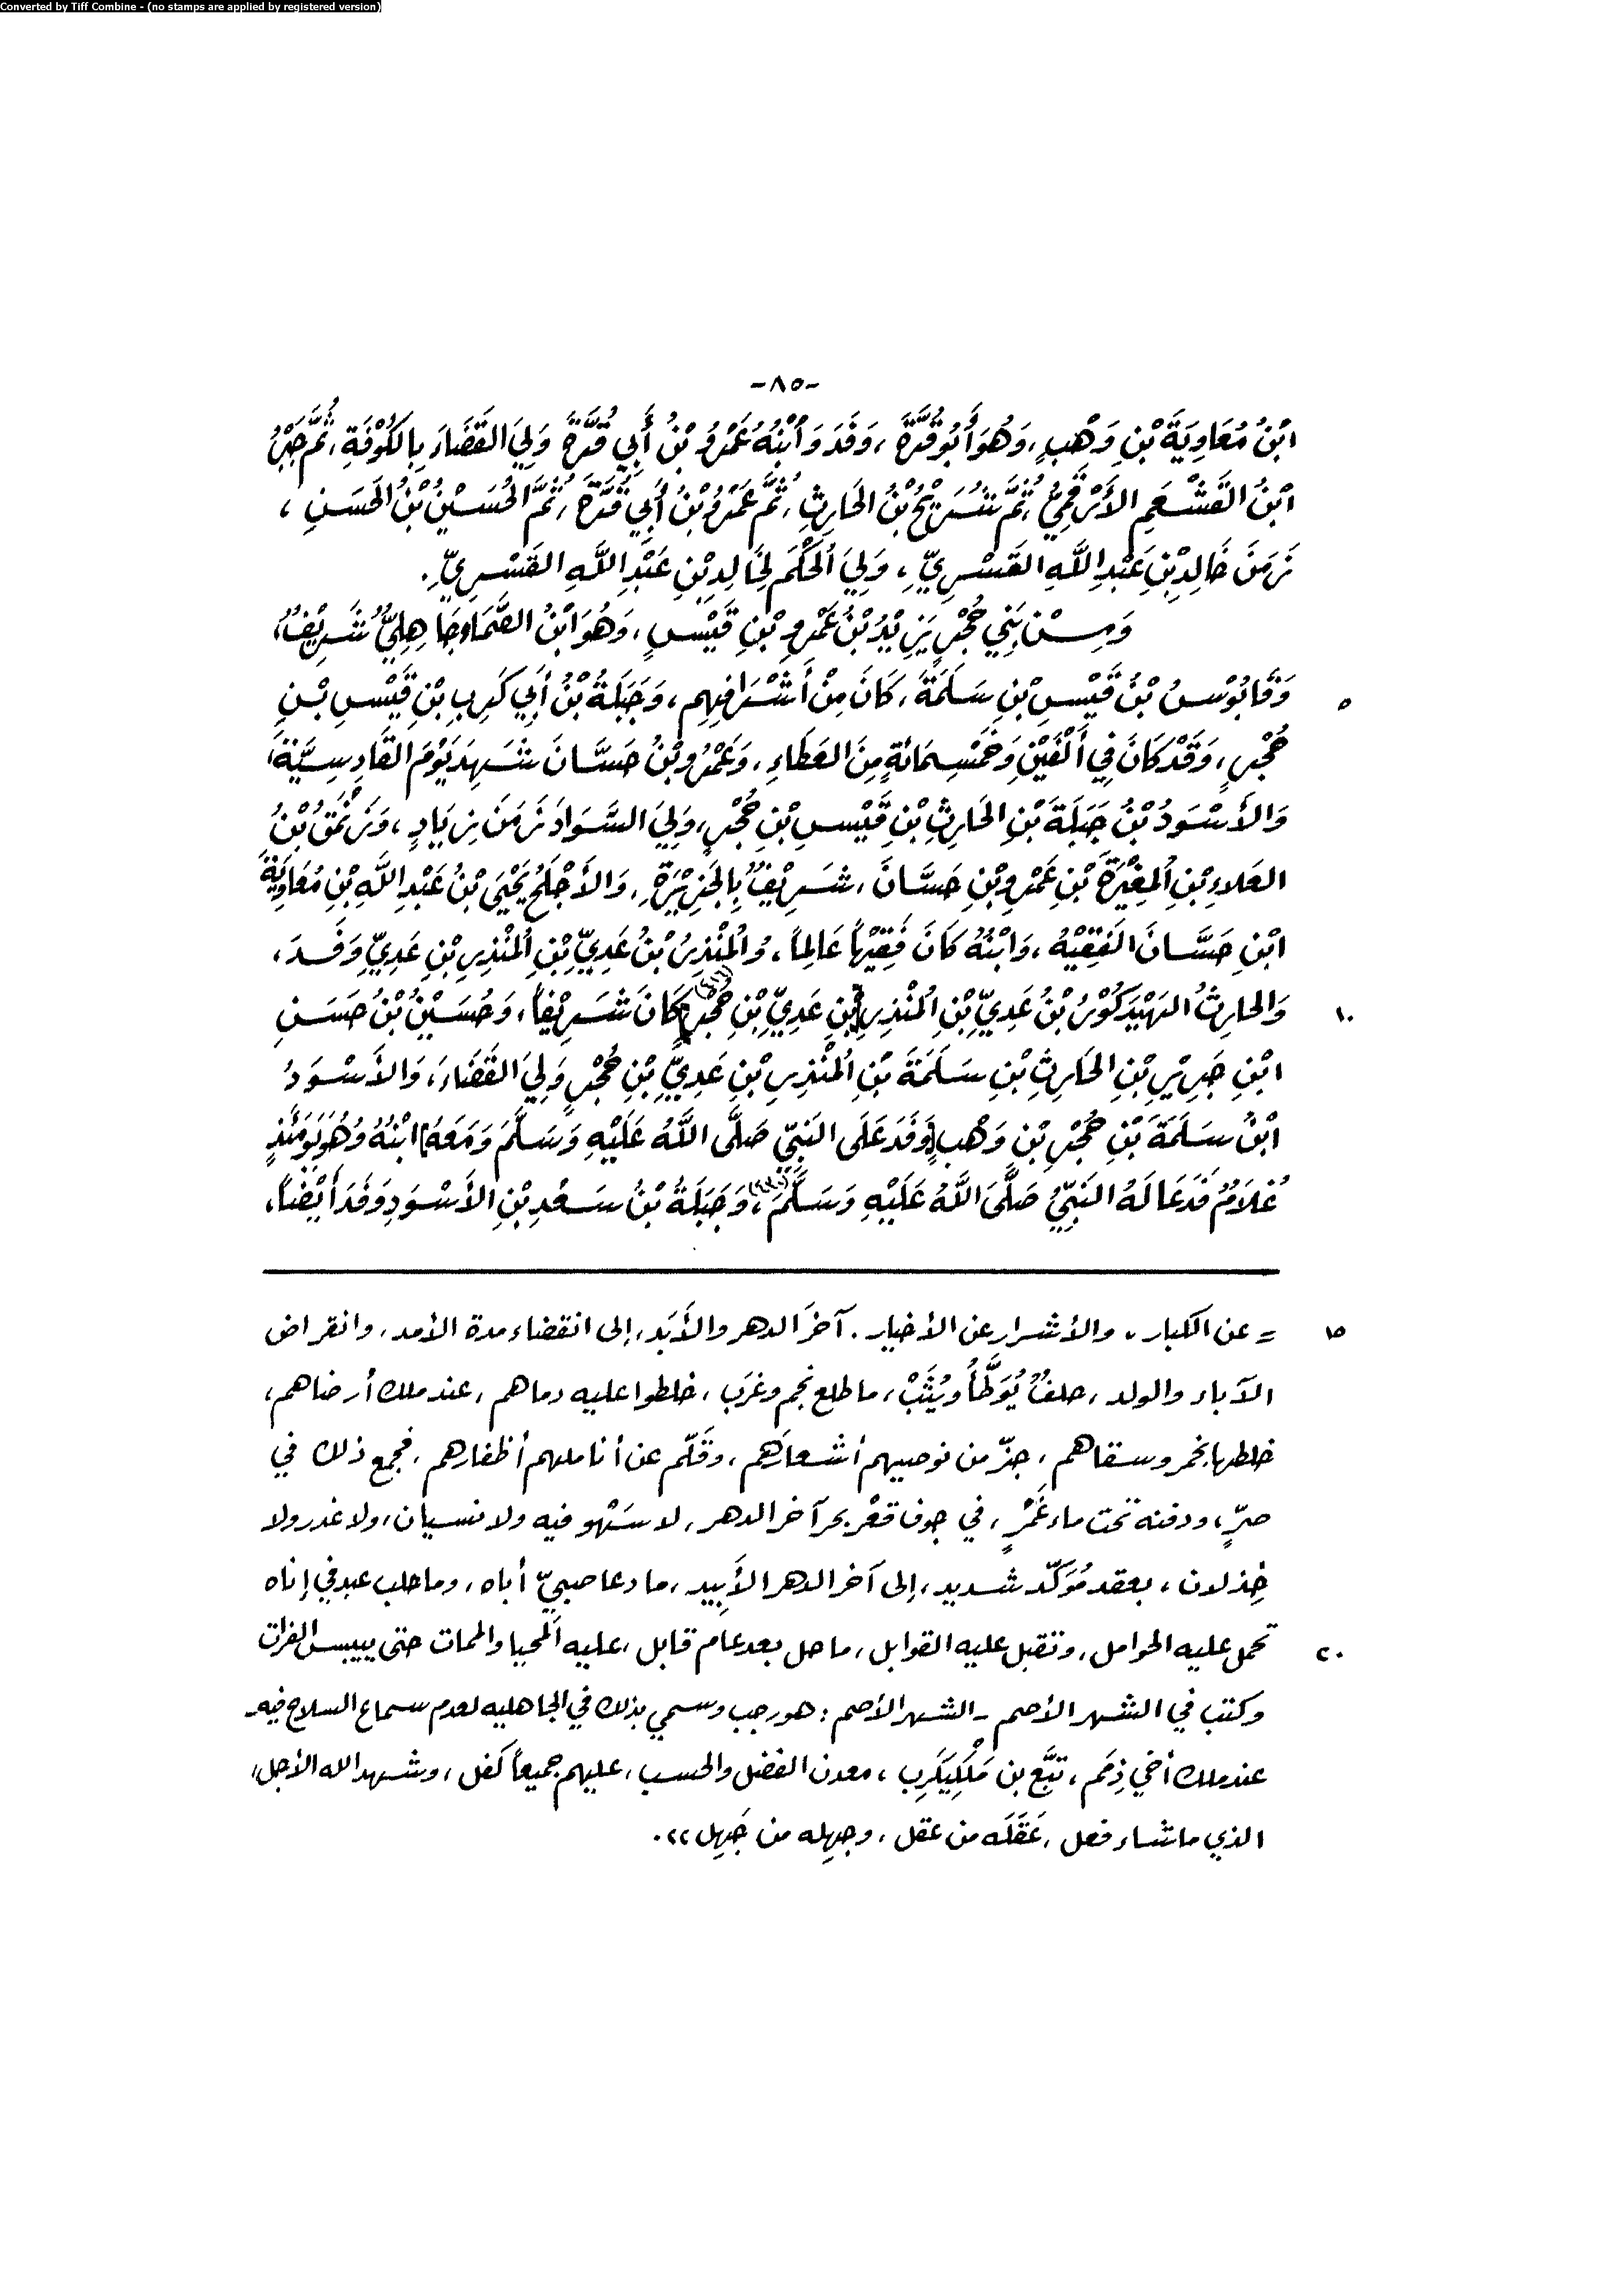 Converted by Tiff Combine - (no stamps are applied by registered version)
-٨٥-
ابْنُ مُعَاوِيَةَ بْنِ وَهْبٍ، وَهُوَ أَبُو قُرَّةَ، وَفَدَ وَابْنُهُ عَمْرُو بْنُ أَبِي قُرَّةَ وَلِيَ القَضَاءَ بِالكُوْفَةِ، ثُمَّ جَبْرُ
ابْنُ القَشْعَمِ الأَرْقَمِيُّ، ثُمَّ شُرَيْحُ بْنُ الحَارِثِ، ثُمَّ عَمْرُو بْنُ أَبِي قُرَّةَ، ثُمَّ الحُسَيْنُ بْنُ الحَسَنِ،
زَمَنَ خَالِدِ بْنِ عَبْدِ اللَّهِ القَسْرِيِّ، وَلِيَ الحُكْمَ لِخَالِدِ بْنِ عَبْدِ اللَّهِ القَسْرِيِّ.
وَمِنْ بَنِي حُجْرٍ يَزِيْدُ بْنُ عَمْرِو بْنِ قَيْسٍ، وَهُوَ ابْنُ الصَّمَّاءِ جَاهِلِيٌّ شَرِيْفٌ،
٥ وَقَابُوْسُ بْنُ قَيْسِ بْنِ سَلَمَةَ، كَانَ مِنْ أَشْرَافِهِم، وَجَبَلَةُ بْنُ أَبِي كَرِبِ بْنِ قَيْسِ بْنِ
حُجْرٍ، وَقَدْ كَانَ فِي أَلْفَيْنِ وَخَمْسِمَائَةٍ مِنَ العَطَاءِ، وَعَمْرُو بْنُ حَسَّانَ شَهِدَ يَوْمَ القَادِسِيَّةِ،
وَالأَسْوَدُ بْنُ جَبَلَةَ بْنِ الحَارِثِ بْنِ قَيْسِ بْنِ حُجْرٍ، وَلِيَ السَّوَادَ زَمَنَ زِيَادٍ، وَزَنْمَقُ بْنُ
العَلاءِ بْنِ المُغِيْرَةِ بْنِ عَمْرِو بْنِ حَسَّانَ، شَرِيْفٌ بِالجَزِيْرَةِ، وَالأَجْلَحُ يَحْيَى بْنُ عَبْدِ اللَّهِ بْنِ مُعَاوِيَةَ
ابْنِ حَسَّانَ الفَقِيْهُ، وَابْنُهُ كَانَ فَقِيْهاً عَالِماً، وَالمُنْذِرُ بْنُ عَدِيِّ بْنِ المُنْذِرِ بْنِ عَدِيٍّ وَفَدَ،
١٠ وَالحَارِثُ الهَيْدَكُوْرُ بْنُ عَدِيِّ بْنِ المُنْذِرِ [بْنِ عَدِيِّ بْنِ حُجْرٍ] كَانَ شَرِيْفاً، وَحُسَيْنُ بْنُ حَسَنِ
ابْنِ جَرِيْرِ بْنِ الحَارِثِ بْنِ سَلَمَةَ بْنِ المُنْذِرِ بْنِ عَدِيِّ بْنِ حُجْرٍ وَلِيَ القَضَاءَ، وَالأَسْوَدُ
ابْنُ سَلَمَةَ بْنِ حُجْرِ بْنِ وَهْبٍ [وَفَدَ عَلَى النَبِيِّ صَلَّى اللَّهُ عَلَيْهِ وَسَلَّمَ وَمَعَهُ] ابْنُهُ وَهُوَ يَوْمَئِذٍ
غُلَامٌ فَدَعَا لَهُ النَبِيُّ صَلَّى اللَّهُ عَلَيْهِ وَسَلَّمَ، وَجَبَلَةُ بْنُ سَعْدِ بْنِ الأَسْوَدِ وَفَدَ أَيْضاً،
١٥ = عن الكبار، والأشرار عن الأخيار. آخرَ الدهر والأبَد، إلى انقضاء مدة الأمد، وانقراض
الآباء والولد، حلفٌ يُوَطَّأُ ويُثَبْ، ما طلع نجم وغرَب، خلطوا عليه دماهم، عند ملك أرضاهم،
خلطها بخمر وسقاهم، جزّ من نوصيهم أشعارَهم، وقَلّم عن أناملهم أظفارهم، فجمع ذلك في
صرٍّ، ودفنه تحت ماء غَمْرٍ، في جوف قعْر بحر آخر الدهر، لا سَهْو فيه ولا نسيان، ولا غدر ولا
خِذلان، بعقد مُوَكّد شديد، إلى آخر الدهر الأبِيد، ما دعا صبيّ أباه، وما حلب عبد في إناه
٢٠ تحمل عليه الحوامل، وتقبل عليه القوابل، ما حل بعد عام قابل، عليه المحيا والممات حتى ييبس الفرات
وكتب في الشهر الأصم - الشهر الأصم: هو رجب وسمي بذلك في الجاهليه لعدم سماع السلاح فيه -
عند ملك أخي ذِمَم، تبَّع بن مَلْكِيَكَرِب، معدن الفضل والحسب، عليهم جميعاً كفل، وشهد الله الأجل،
الذي ما شاء فعل، عَقَلَه من عقل، وجهِله من جَهِل ».